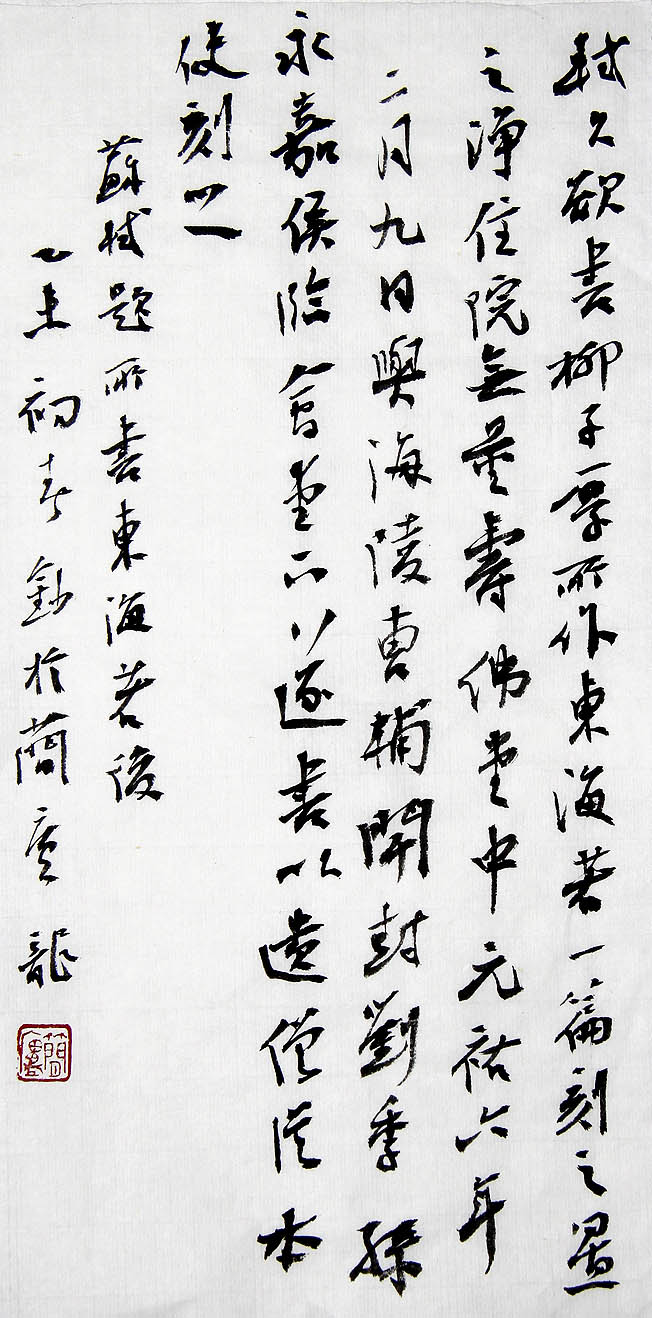 軾久欲書柳子厚所作東海若一篇刻之置
之淨住院無量壽佛堂中元祐六年
二月九日與海陵曹輔開封劉季孫
永嘉侯臨會堂下遂書以遺僧從本
使刻之
蘇軾題所書東海若後
乙未初春鈔於簡廬 龍
簡廬